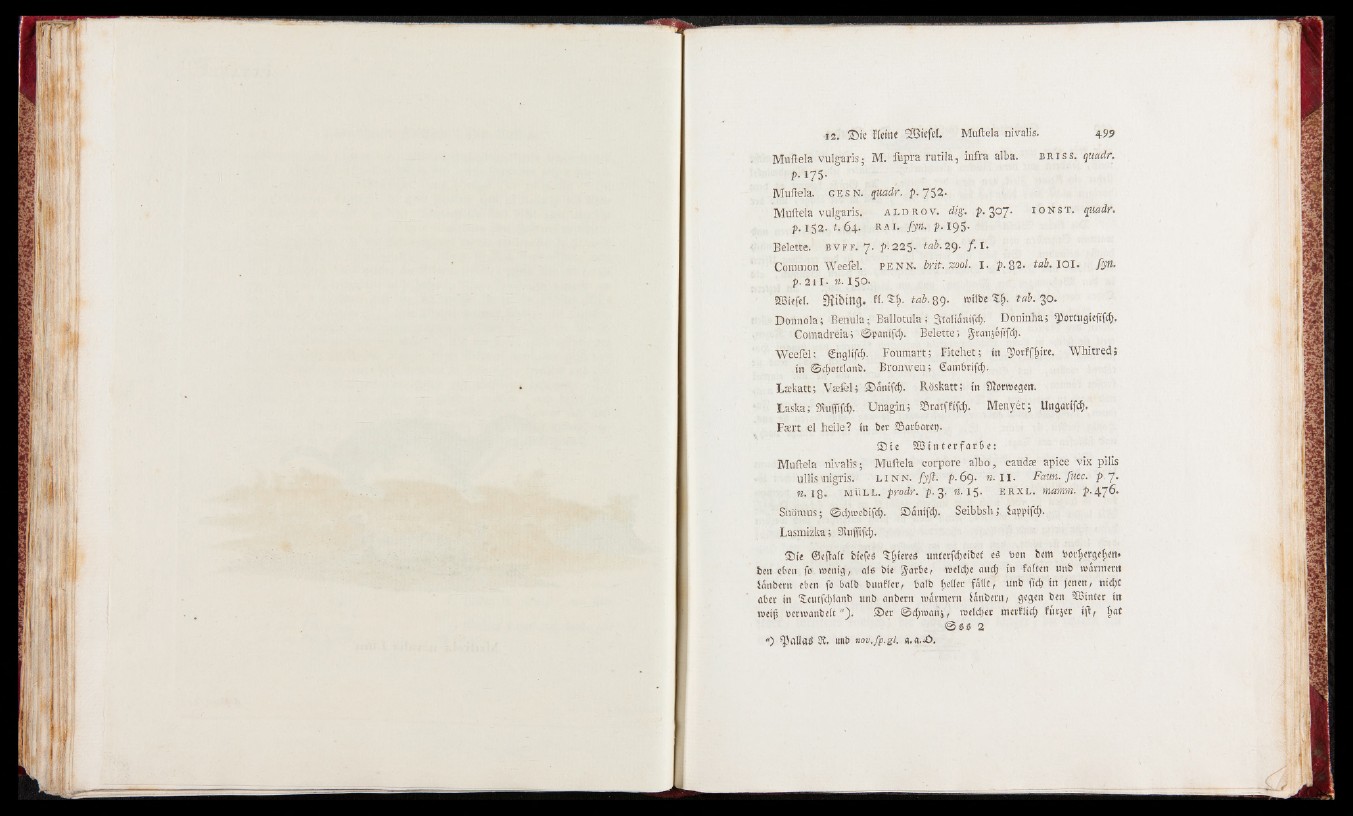 12. Die kleine Wiesel. Muſtela nivalis. 499
Muſtela vulgaris; M. ſupra rutila, infra alba. BRISS. quadr.
p. 175.
Muſtela. GESN. quadr. p. 752.
Muſtela vulgaris. ALDROV. dig. p. 307. IONST. quadr.
p. 152. t. 64. RAI. ſyn. p. 195.
Belette. BVFF. 7. p. 225. tab. 29. f. 1.
Common Weeſel. PENN. brit. zool. 1. p. 82. tab. 101. ſyn.
p. 211. n. 150.
Wieſel. Riding. kl. Th. tab. 89. wilde Th. tab. 30.
Donnola; Benula; Ballotula; Italiäniſch. Doninha; Portugieſiſch.
Comadreia; Spaniſch. Belette; Französiſch.
Weeſel; Engliſch. Foumart; Fitchet; in Yorkſhire. Whitred;
in Schottland. Bronwen; Cambriſch.
Lækatt; Væſel; Däniſch. Röskatt; in Norwegen.
Laska; Ruſſiſch. Unagin; Bratſkiſch. Menyét; Ungariſch.
Fært el heile? in der Barbarey.
Die Winterfarbe:
Muſtela nivalis; Muſtela corpore albo, caudæ apice vix pilis
ullis nigris. LINN. ſyſt. p. 69. n. 11. Faun. ſuec. p. 7.
n. 18. MÜLL. prodr. p. 3. n. 15. ERXL. mamm. p. 476.
Snömus; Schwediſch. Däniſch. Seibbsh; Lappiſch.
Lasmizka; Ruſſiſch.
Die Geſtalt dieſes Thieres unterſcheidet es von dem vorhergehen-
den eben ſo wenig, als die Farbe, welche auch in kalten und wärmern
Ländern eben ſo bald dunkler, bald heller fällt, und ſich in jenen, nicht
aber in Teutſchland und andern wärmern Ländern, gegen den Winter in
weiß verwandelt ª). Der Schwanz, welcher merklich kürzer iſt, hat
Sss 2
ª) Pallas R. und nov. ſp. gl. a. a. O.